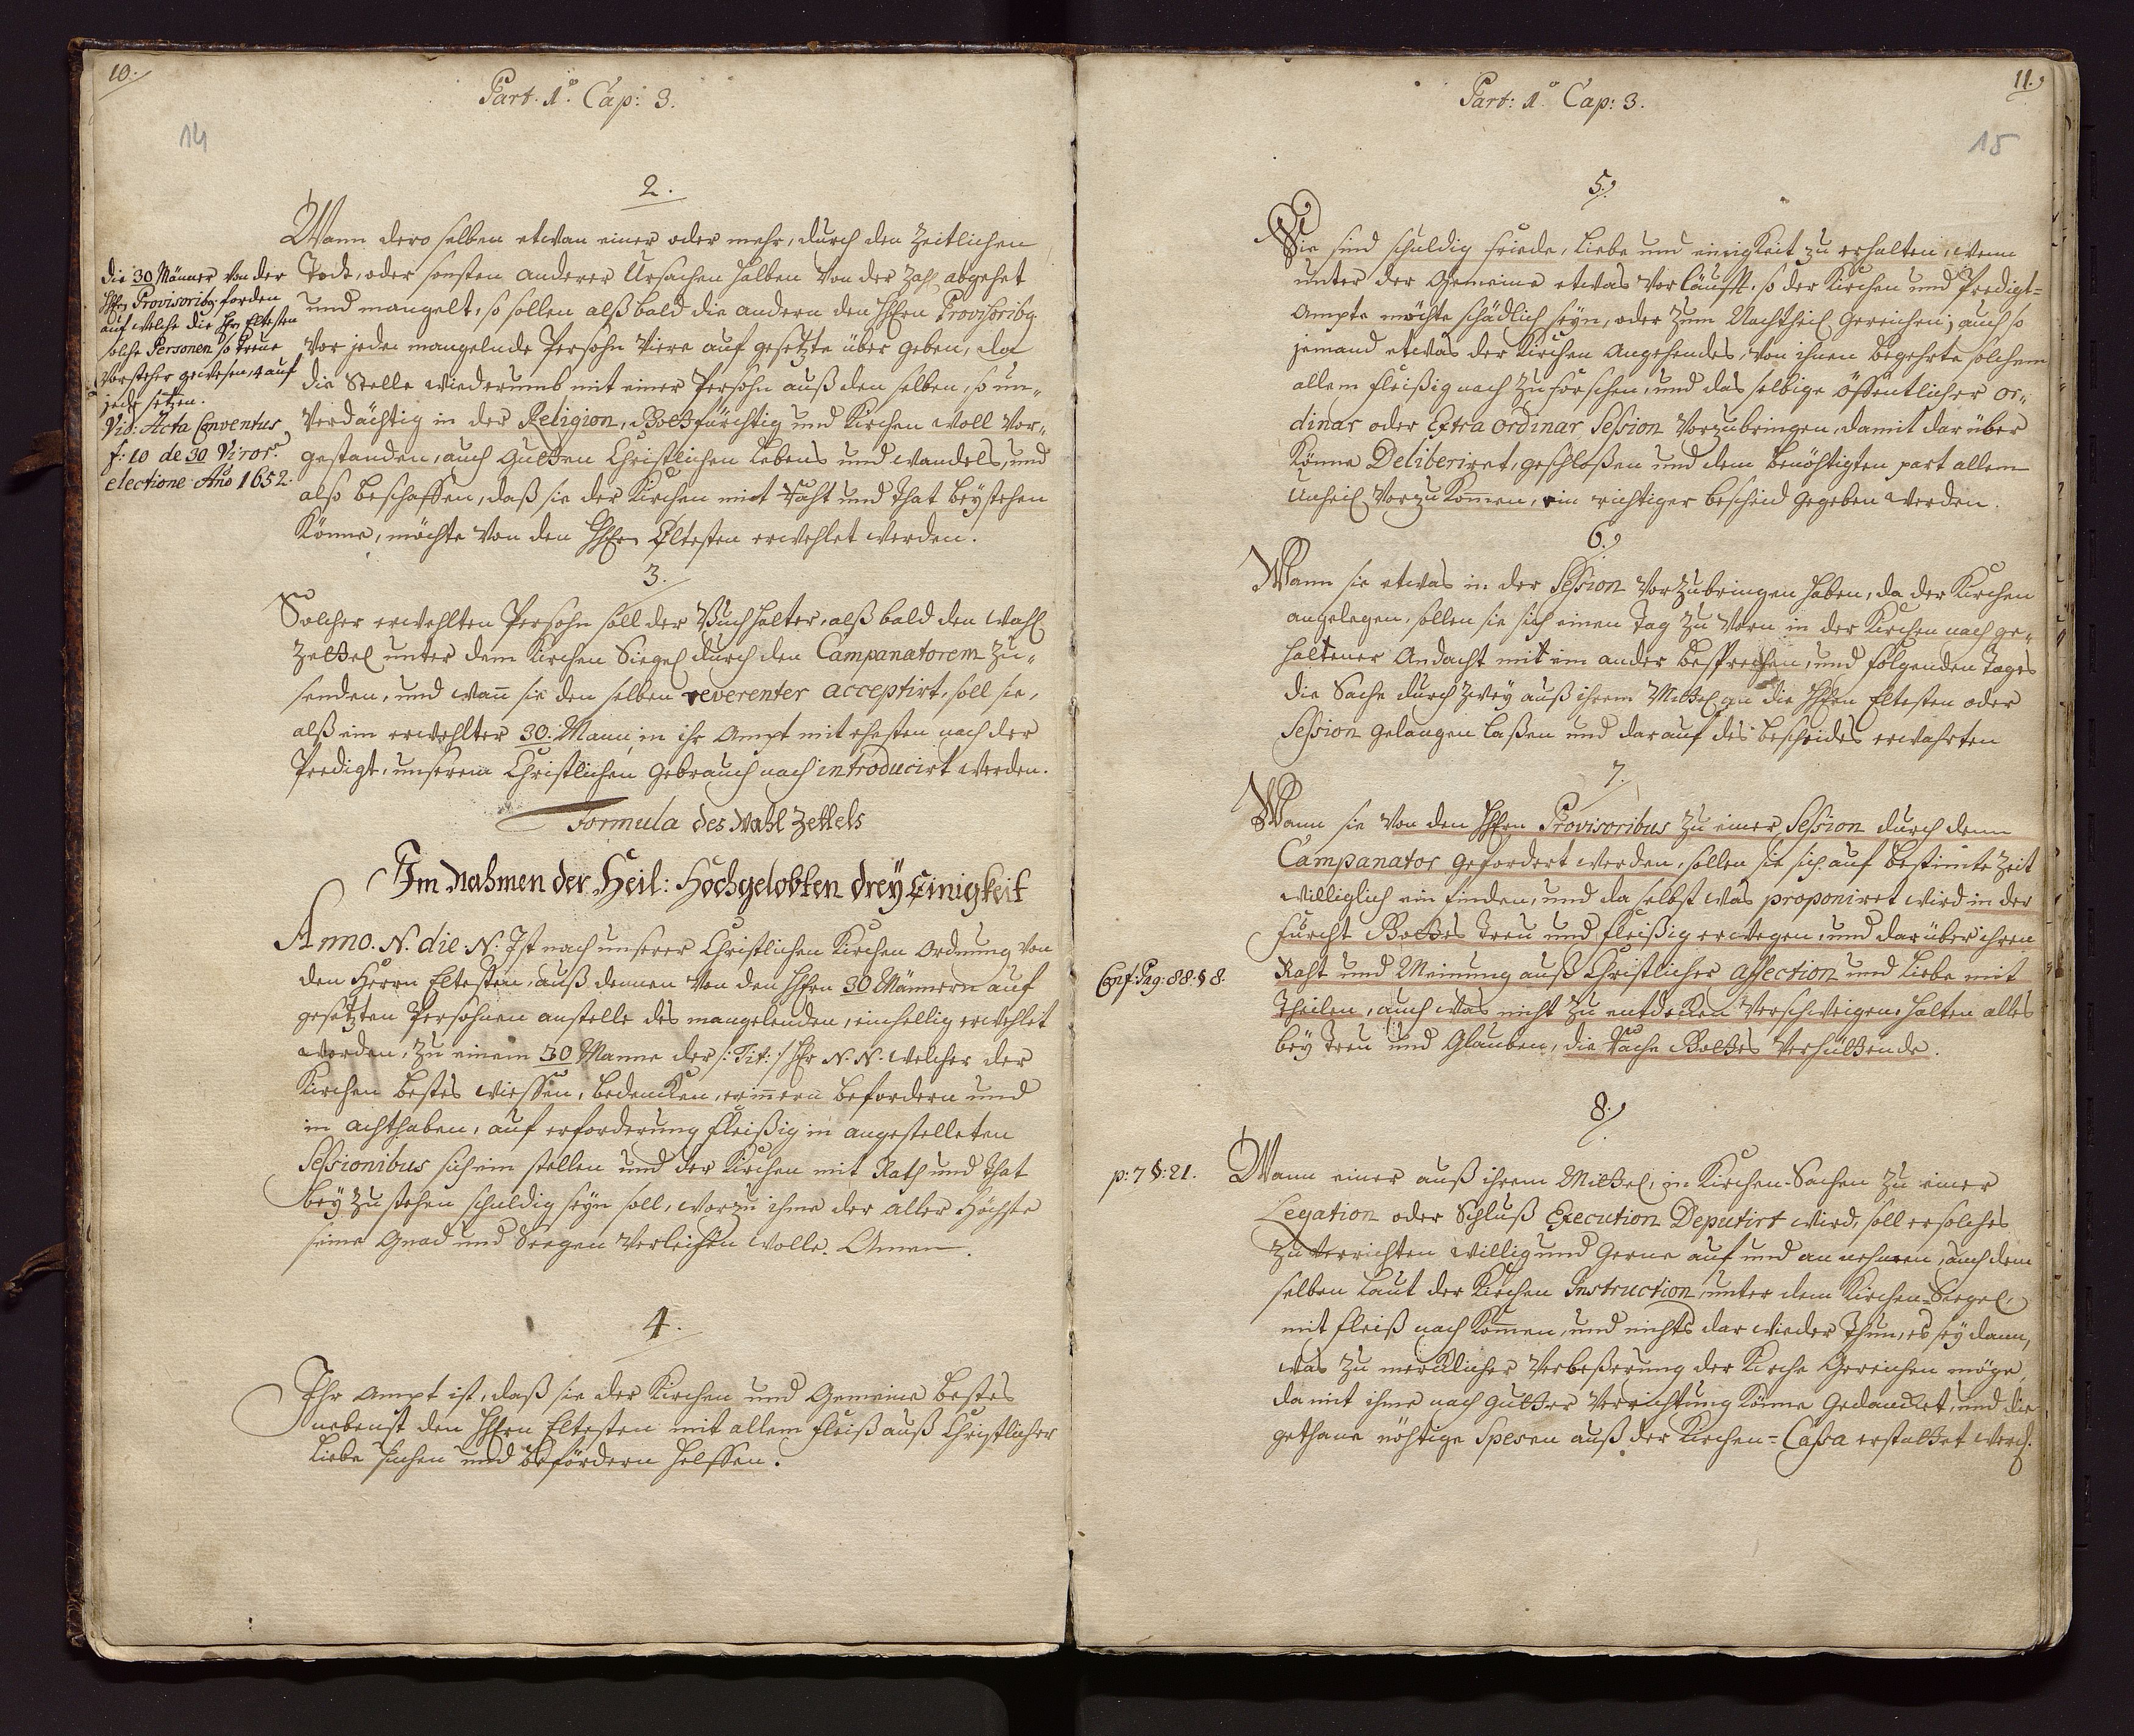 10.
14
Part. 1.º Cap: 3.
2.
Wann dero selben etwan einer oder mehr, durch den Zeitlichen
Todt, oder sonsten anderer Ursachen halben von der Zahl abgehet
und mangelt, so sollen alßbald die andern den HHrn Provisoribg
vor jede mangelnde Persohn Viere auf gesetzte über geben, da
die Stelle wiederumb mit einer Persohn auß den selben, so un-
verdächtig in der Religion, Gottsfürchtig und Kirchen woll vor-
gestanden, auch Gutten Christlichen Lebens und wandels, und
also beschaffen, daß sie der Kirchen mit Raht und That beystehen
Könne, möchte von den HHrn Eltesten erwehlet werden.
die 30 Männer von der
HHrn Provisoribg fordern
auf welche die Hrn Eltesten
solche Personen so treue
Vorsteher gewesen, 4 auf
jede setzen.
Vid: Acta Conventus
f: 10 de 30 Viror.
electione Año 1652.
3.
Solcher erwehlten Persohn soll der Buchhalter, alßbald den Wahl
Zettel unter dem Kirchen Siegel durch den Campanatorem zu-
senden, und wañ sie den selben reverenter acceptirt, soll sie,
alß ein erwehlter 30. Mann, in ihr Ampt mit ehesten nach der
Predigt, unserem Christlichen Gebrauch nach introducirt werden.
Formula des Wahl Zettels
Im Nahmen der Heil: Hochgelobten dreyEinigkeit
Anno. N. die. N. Ist nach unserer Christlichen Kirchen Ordnung von
den Herrn Eltesten, auß dennen von den HHrn 30 Männern auf
gesetzten Persohnen anstelle des mangelenden, einhellig erwehlet
worden, zu einem 30 Manne der /: Tit: / Hr N. N. welcher der
Kirchen bestes wiessen, bedencken, erinnern befordern und
in acht haben, auf erforderung fleißig in angestelleten
Sessionibus sich ein stellen und der Kirchen mit Rath und That
bey zu stehen schuldig seyn soll, worzu ihme der aller Höchste
seine Gnad und Seegen verleihen wolle. Amen.
4.
Ihr Ampt ist, daß sie der Kirchen und Gemeine bestes
nebenst den HHrn Eltesten mit allem fleiß auß Christlicher
Liebe suchen und befördern helffen.
11.
15
Part: 1.º Cap: 3.
5.
Sie sind schuldig friede, Liebe und einigkeit zu erhalten, wenn
unter der Gemeine etwas vorläufft, so der Kirchen und Predigt-
Ampte möchte schädlich seyn, oder zum Nachtheil Gereichen; auch so
jemand etwas der Kirchen Angehendes, von ihnen begehrte solchem
allem fleißig nach zu forschen, und das selbige öffentlicher or-
dinar oder Extra ordinar Session vorzubringen, damit darüber
könne Deliberiret, geschloßen und dem benöhtigten part allem
Unheil vorzukomen, ein richtiger bescheid gegeben werden.
6.
Wann sie etwas in der Session vorzubringen haben, da der Kirchen
angelegen, sollen sie sich einen Tag zu vorn in der Kirchen nach ge-
haltener Andacht mit ein ander besprechen, und folgenden Tages
die Sache durch zwey auß ihrem Mittel an die HHrn Eltesten oder
Session gelangen laßen und darauf des bescheides erwahrten
7.
Wann sie von den HHrn Provisoribus zu einer Session durch denn
Campanator gefordert werden, sollen sie sich auf bestimte Zeit
williglich ein finden, und da selbst was proponiret wird in der
furcht Gottes treu und fleißig erwegen, und darüber ihren
Raht und Meinung auß Christlicher affection und Liebe mit
theilen, auch was nicht zu entdecken verschweigen, halten alles
bey Treu und Glauben, die Rache Gottes verhüttende.
Conf: Pag: 88. § 8.
8.
p: 7 §: 21.
Wann einer auß ihrem Mittel, in Kirchen-Sachen zu einer
Legation oder Schluß Execution Deputirt wird, soll er solches
zu verrichten willig und Gerne auf und an nehmen, auch dem
selben laut der Kirchen Instruction, unter dem Kirchen-Siegel,
mit fleiß nach komen, und nichts dar wieder thun, es sey dann,
was zu mercklicher Verbeßerung der Kirche Gereichen möge,
damit ihme nach gutter Verrichtung könne Gedancket, und die
gethane nöhtige Spesen auß der Kirchen-Cassa erstattet werd.